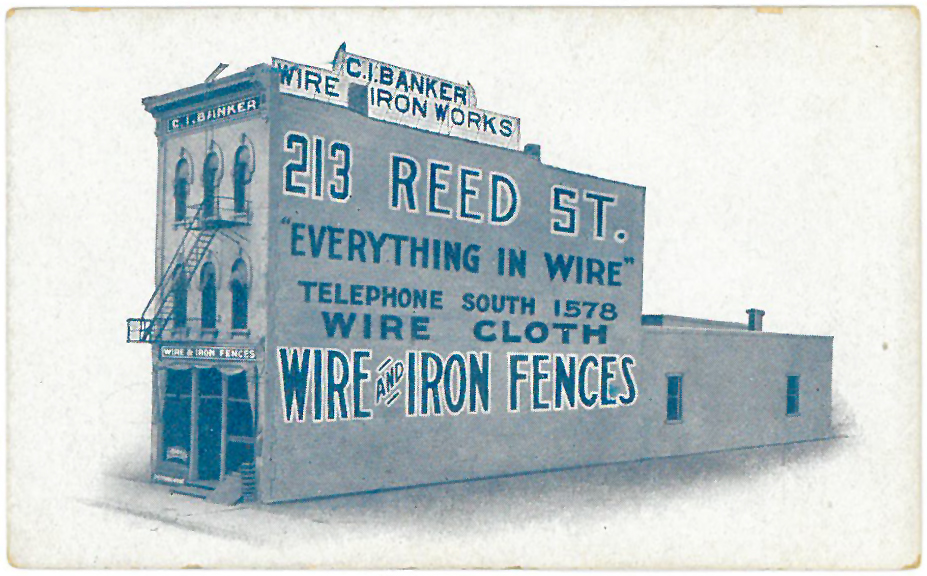 C.I.BANKER
WIRE IRON WORKS
C.I.BANKER
213 REED ST.
"EVERYTHING IN WIRE"
TELEPHONE SOUTH 1578
WIRE CLOTH
WIRE & IRON FENCES
WIRE AND IRON FENCES